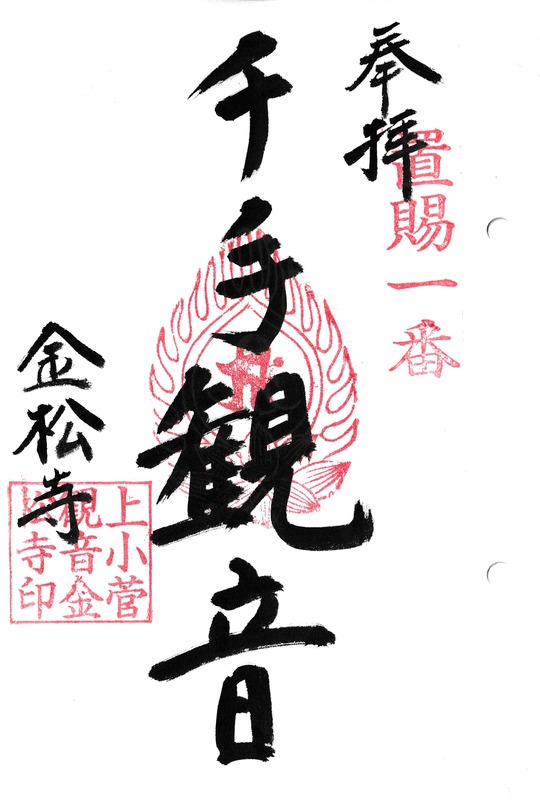 奉拝
置賜一番
千手観音
金松寺
上小菅
観音金
松寺印